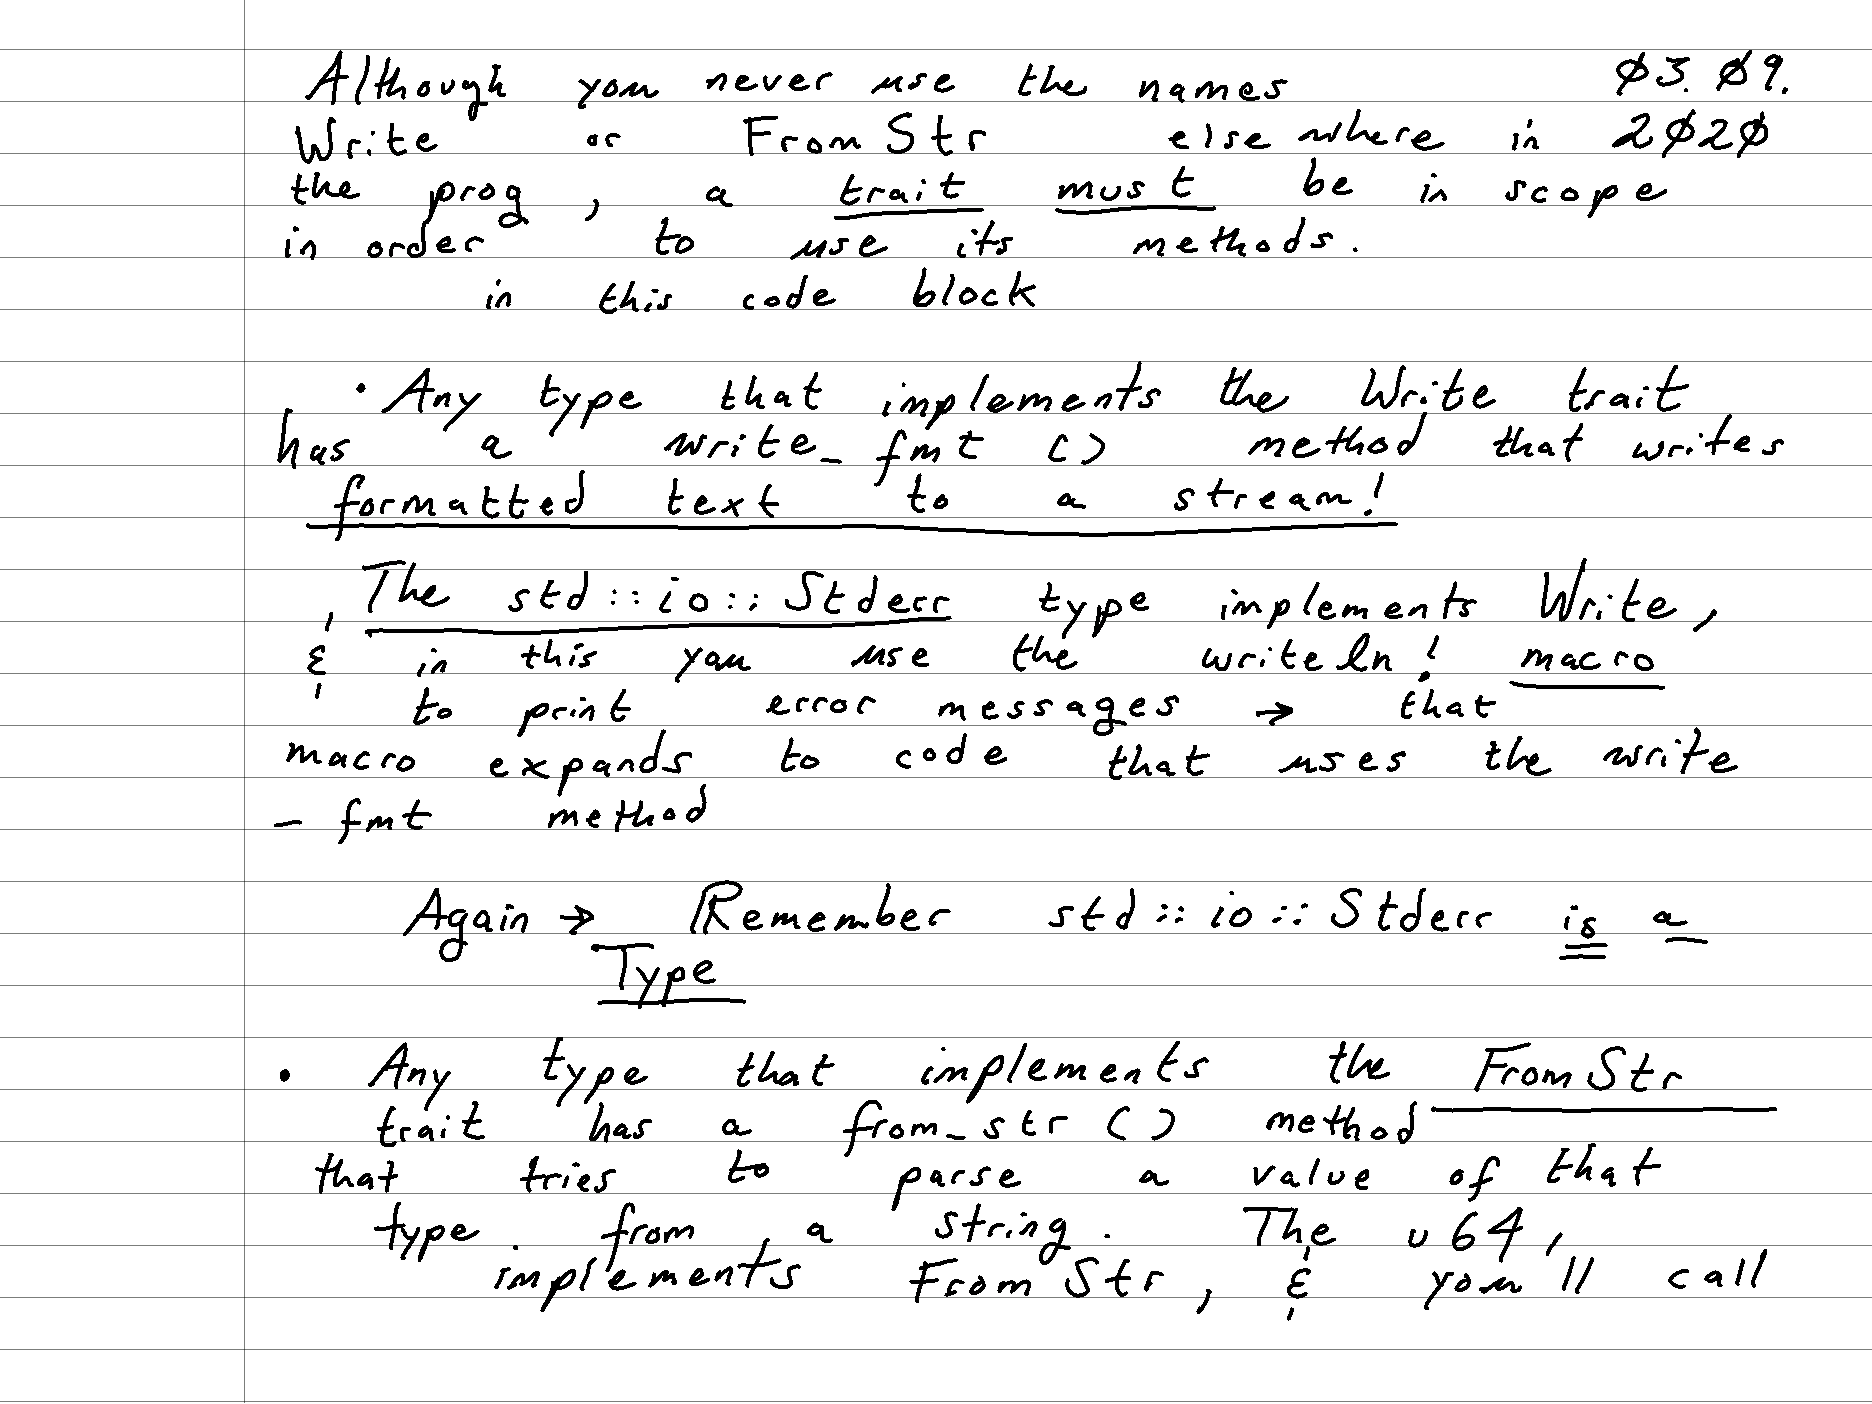 Although you never use the names 03.09.
Write or FromStr elsewhere in 2020
the prog, a trait must be in scope
in order to use its methods.
in this code block
· Any type that implements the Write trait
has a write_fmt () method that writes
formatted text to a stream!
The std::io::Stderr type implements Write,
& in this you use the writeln! macro
to print error messages → that
macro expands to code that uses the write
_fmt method
Again → Remember std::io::Stderr is a
Type
· Any type that implements the FromStr
trait has a from_str () method
that tries to parse a value of that
type from a string. The u64,
implements FromStr, & you'll call